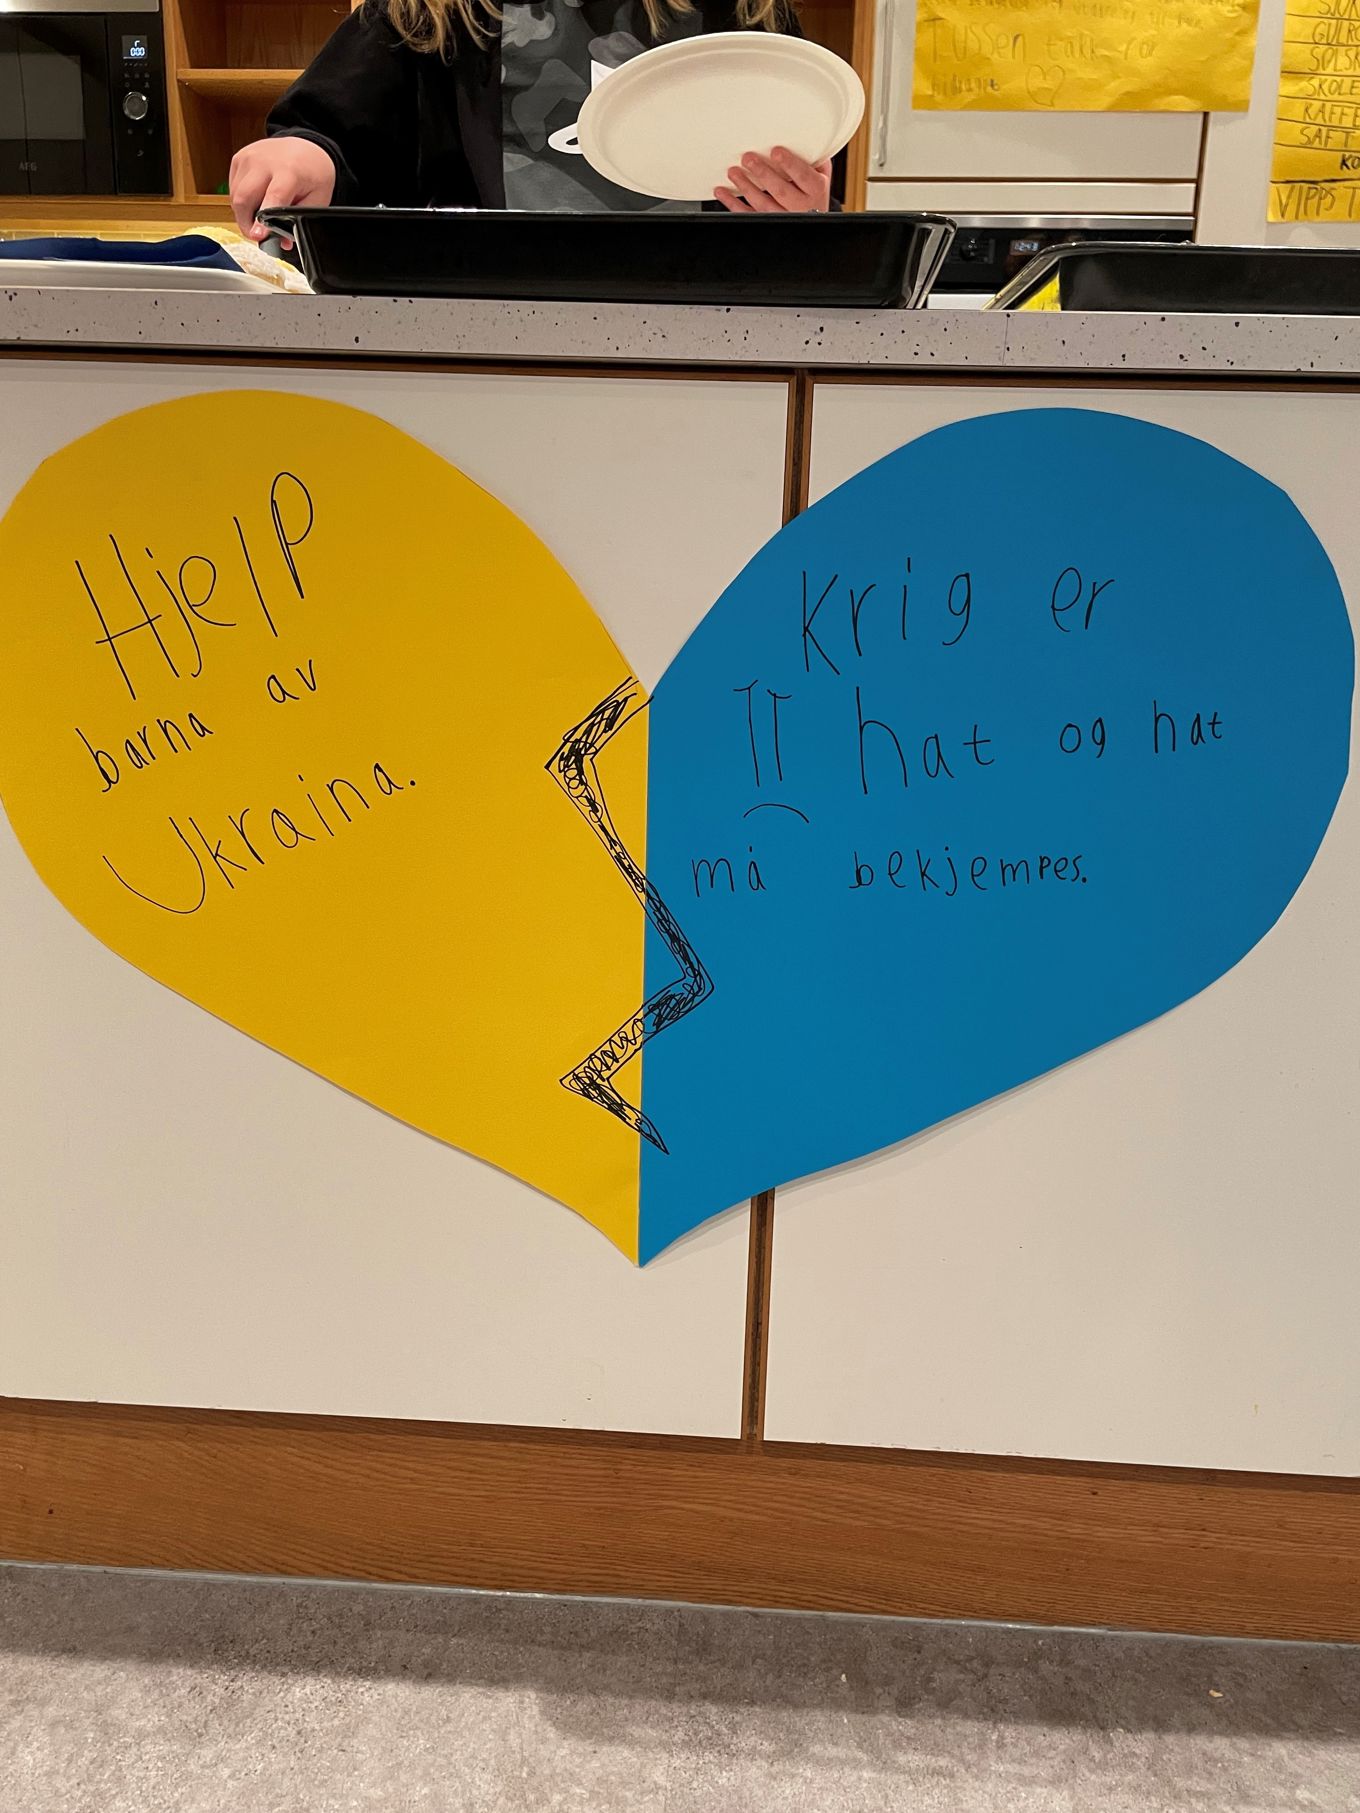 TUSSEN takk for
GULRO
SOLSK
SKOLE
KAFFE
SAFT
KO
VIPPS T
AEG
Hjelp
barna av
Ukraina.
Krig er
hat og hat
må bekjempes.